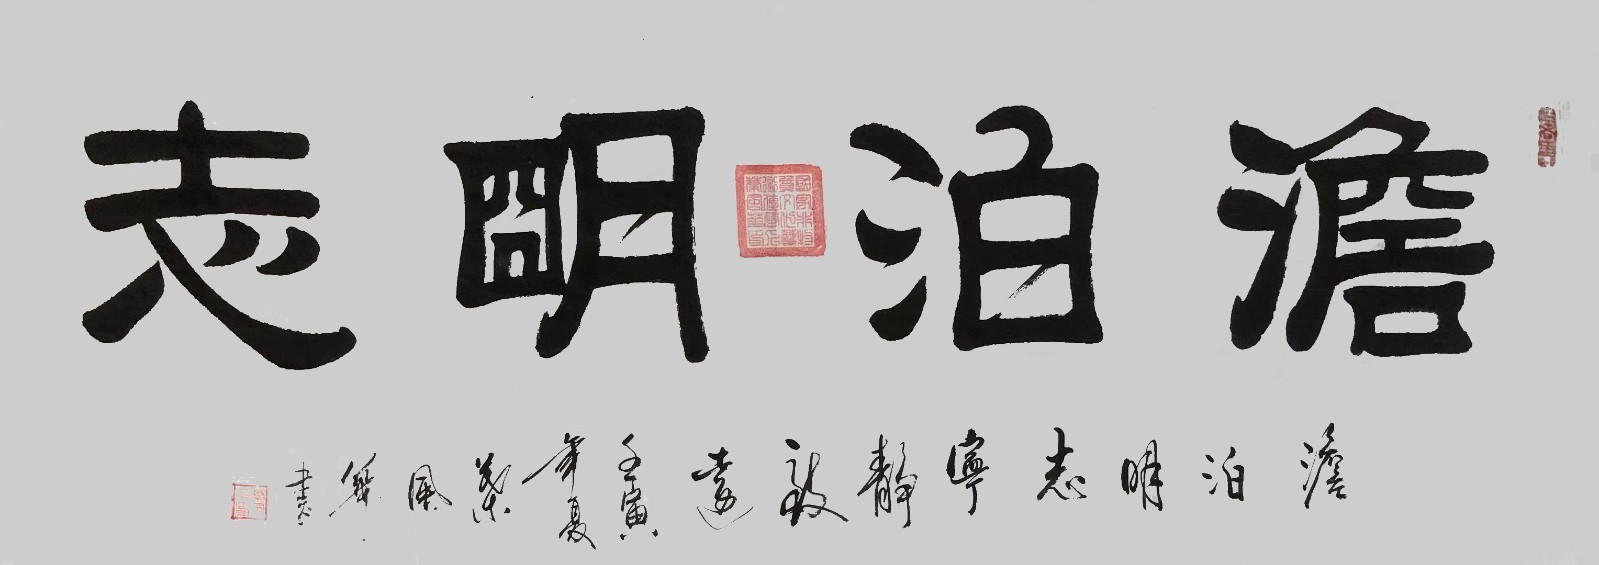 澹泊明志
澹泊明志寧靜致遠壬寅年夏葉風華書